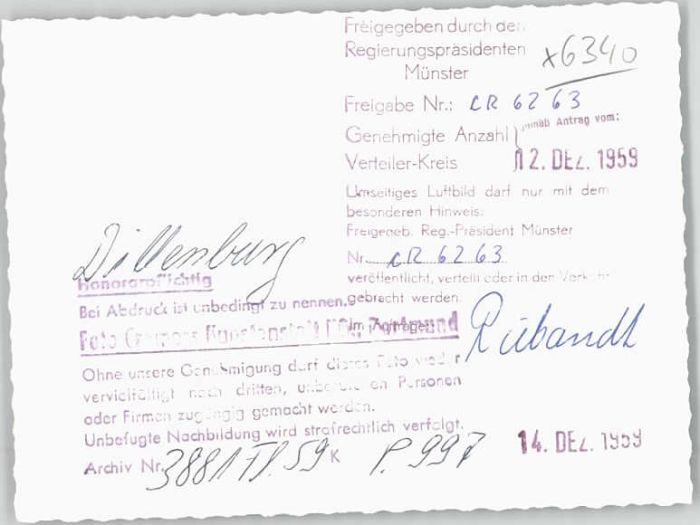 Freigegeben durch den
Regierungspräsidenten
Münster
x6340
Freigabe Nr.: CR 6263
Genehmigte Anzahl gemäß Antrag vom:
Verteiler-Kreis 12. DEZ. 1959
Umseitiges Luftbild darf nur mit dem
besonderen Hinweis:
Freigegeb. Reg.-Präsident Münster
Nr. CR 6263
veröffentlicht, verteilt oder in den Verkehr
gebracht werden.
Im Auftrage:
Rübandt
Dillenburg
Honorarpflichtig
Bei Abdruck ist unbedingt zu nennen:
Foto Cramers Kunstanstalt KG, Dortmund
Ohne unsere Genehmigung darf dieses Foto weder
vervielfältigt noch dritten, unbefugten Personen
oder Firmen zugängig gemacht werden.
Unbefugte Nachbildung wird strafrechtlich verfolgt.
Archiv Nr. 3881 59 K P. 997
14. DEZ. 1959